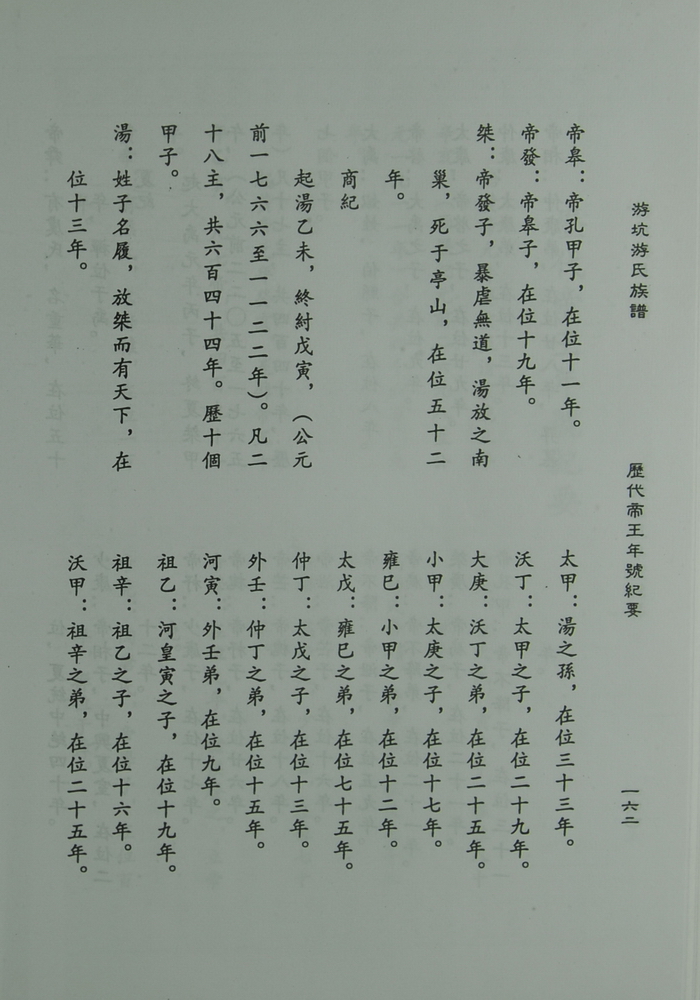 游坑游氏族譜
歷代帝王年號紀要
一六二
帝皋：帝孔甲子，在位十一年。
帝發：帝皋子，在位十九年。
桀：帝發子，暴虐無道，湯放之南
巢，死于亭山，在位五十二
年。
商紀
起湯乙未，終紂戊寅，（公元
前一七六六至一一二二年）。凡二
十八主，共六百四十四年。歷十個
甲子。
湯：姓子名履，放桀而有天下，在
位十三年。
太甲：湯之孫，在位三十三年。
沃丁：太甲之子，在位二十九年。
大庚：沃丁之弟，在位二十五年。
小甲：太庚之子，在位十七年。
雍巳：小甲之弟，在位十二年。
太戊：雍巳之弟，在位七十五年。
仲丁：太戊之子，在位十三年。
外壬：仲丁之弟，在位十五年。
河寅：外壬弟，在位九年。
祖乙：河皇寅之子，在位十九年。
祖辛：祖乙之子，在位十六年。
沃甲：祖辛之弟，在位二十五年。